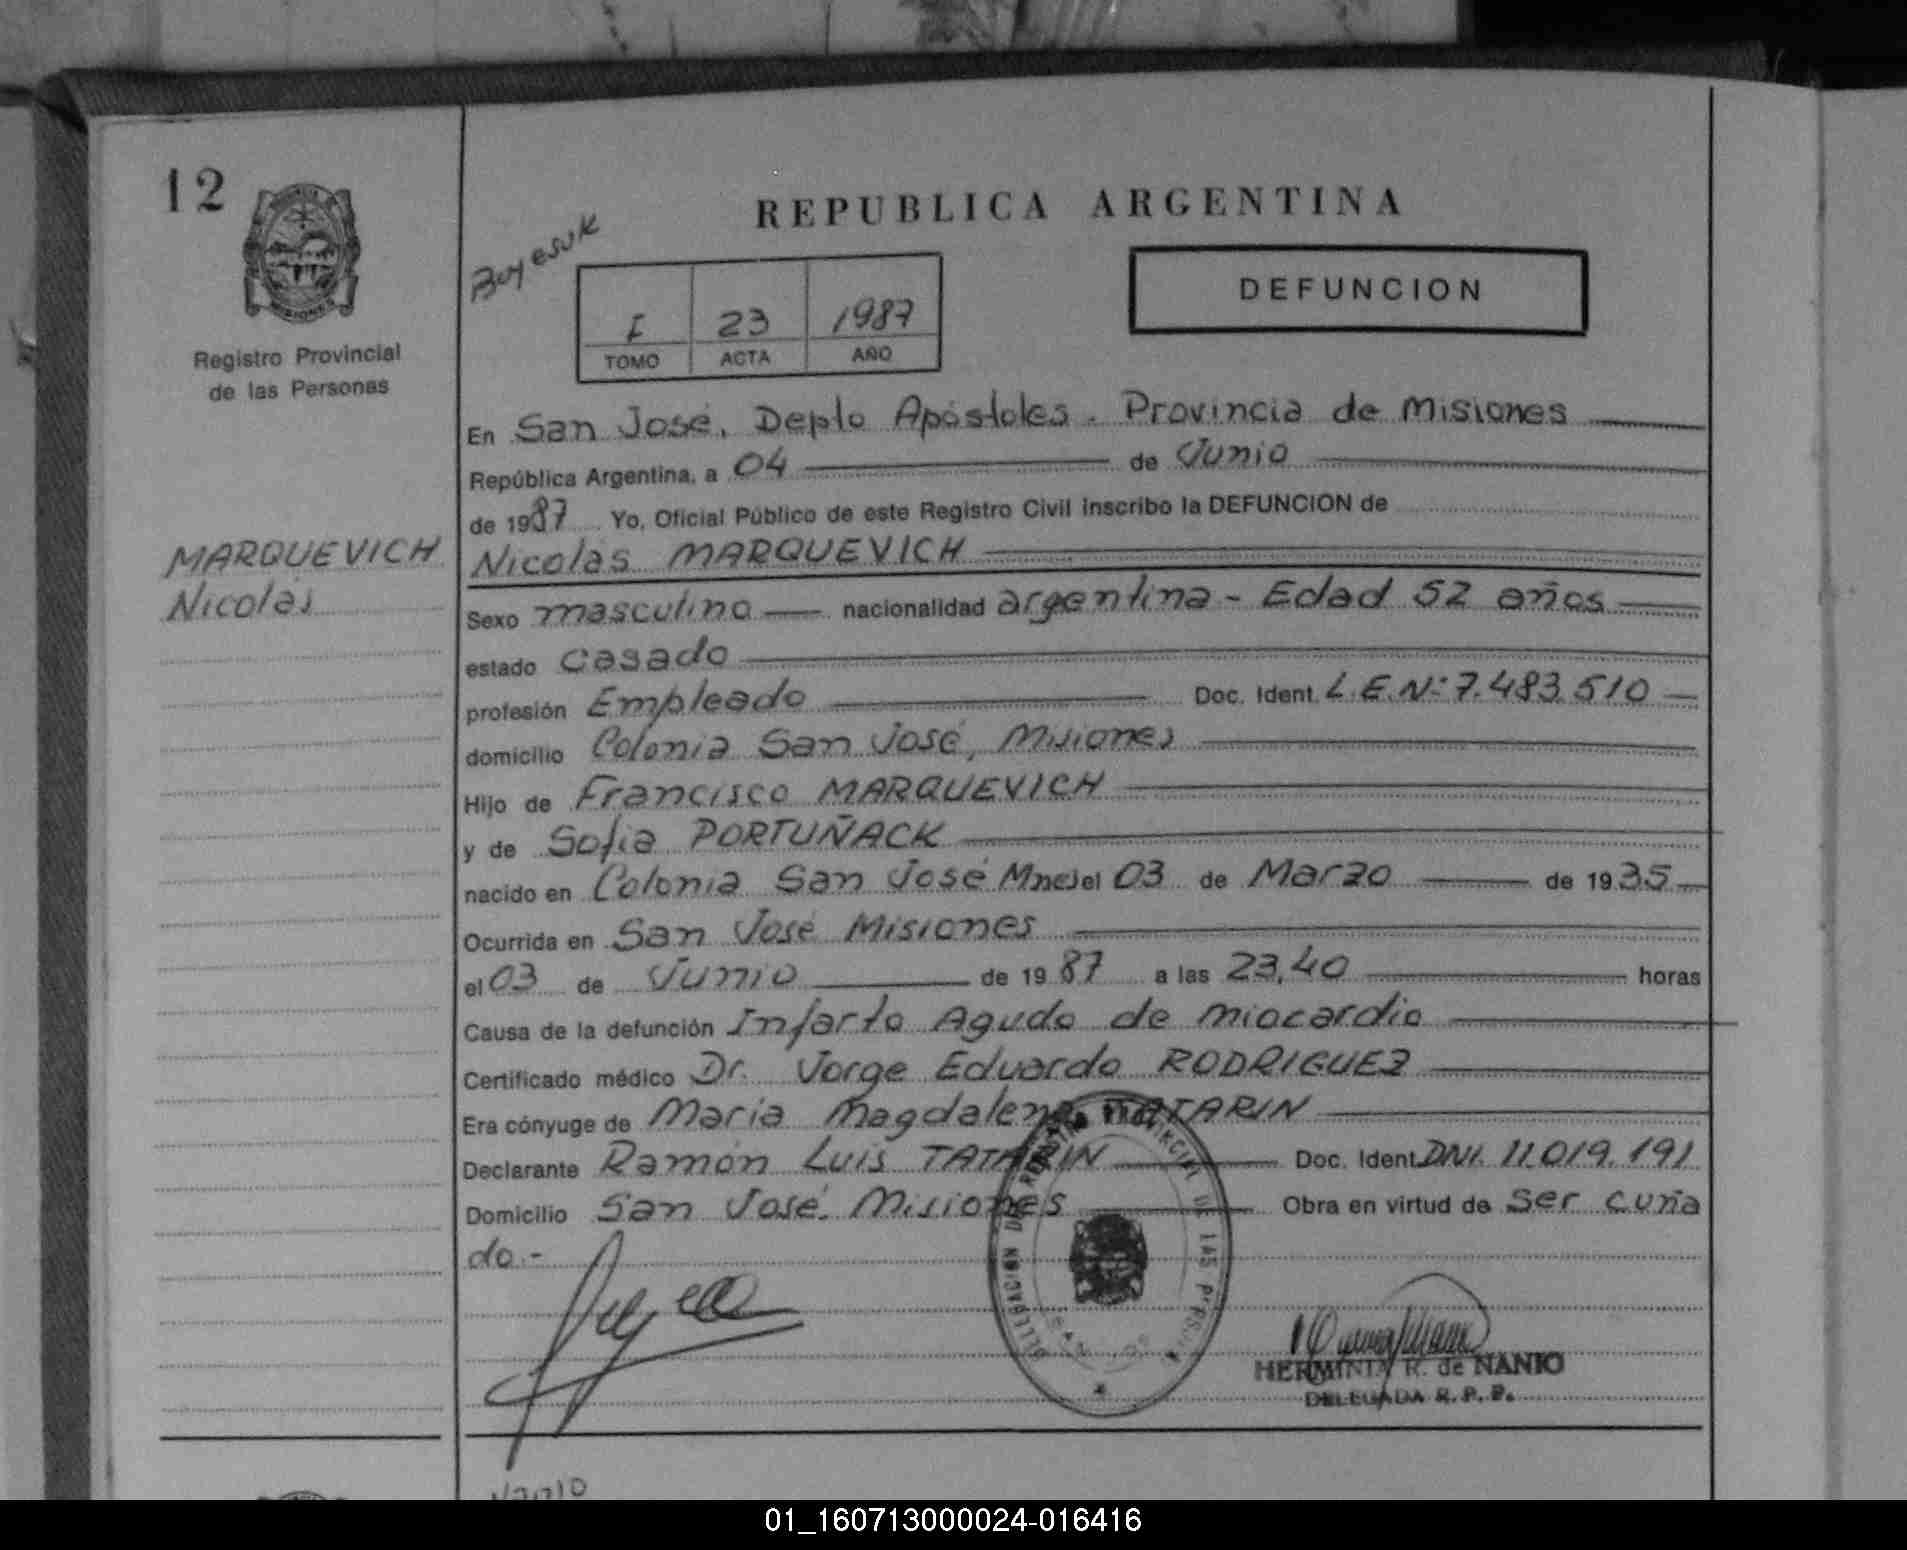 12
REPUBLICA ARGENTINA
Boyesuk
DEFUNCION
I 23 1987
TOMO ACTA AÑO
MISIONES
Registro Provincial
de las Personas
En San José, Depto Apóstoles. Provincia de Misiones
República Argentina, a 04 de Junio
de 1987 Yo, Oficial Público de este Registro Civil inscribo la DEFUNCION de
MARQUEVICH
Nicolás
Nicolás MARQUEVICH
Sexo masculino nacionalidad argentina - Edad 52 años
estado casado
profesión Empleado Doc. Ident. L.E.N: 7.483.510
domicilio Colonia San José, Misiones
Hijo de Francisco MARQUEVICH
y de Sofia PORTUÑACK
nacido en Colonia San José Mnes el 03 de Marzo de 1935
Ocurrida en San José Misiones
el 03 de Junio de 1987 a las 23,40 horas
Causa de la defunción Infarto Agudo de miocardio
Certificado médico Dr. Jorge Eduardo RODRIGUEZ
Era cónyuge de Maria Magdalena TATARIN
Declarante Ramón Luis TATARIN Doc. Ident. DNI. 11.019.191
Domicilio San José. Misiones Obra en virtud de ser cuña
do.-
DELEGACION DEL REGISTRO PROVINCIAL DE LAS PERSONAS
HERMINIA R. de NANIO
DELEGADA R. P. P.
01_160713000024-016416